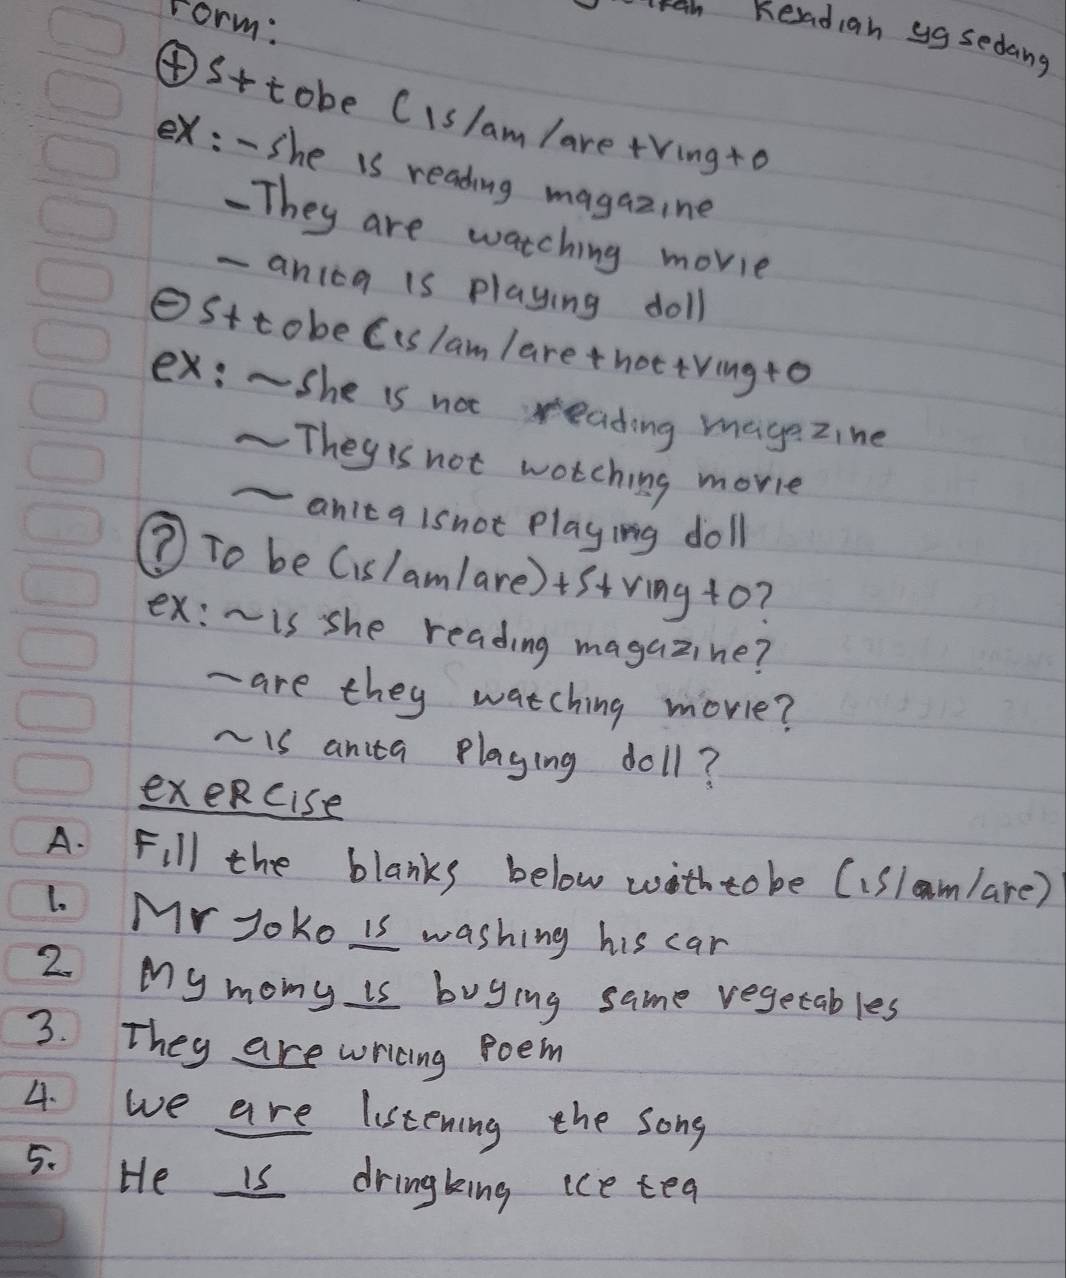 Form:
Kejadian yg sedang
⊕ S + tobe (is/am/are + Ving + o
ex: - She is reading magazine
- They are watching movie
- anita is playing doll
⊖ S + tobe (is/am/are + not + Ving + o
ex: ~ She is not reading magazine
~ They is not wotching movie
~ anita isnot playing doll
? To be (is/am/are) + S + Ving + o?
ex: ~ is she reading magazine?
~ are they watching movie?
~ is anita playing doll?
exeRcise
A. Fill the blanks below with tobe (is/am/are)
1. Mr Joko is washing his car
2. My momy is buying same vegetables
3. They are writing Poem
4. We are listening the song
5. He is dringking ice tea